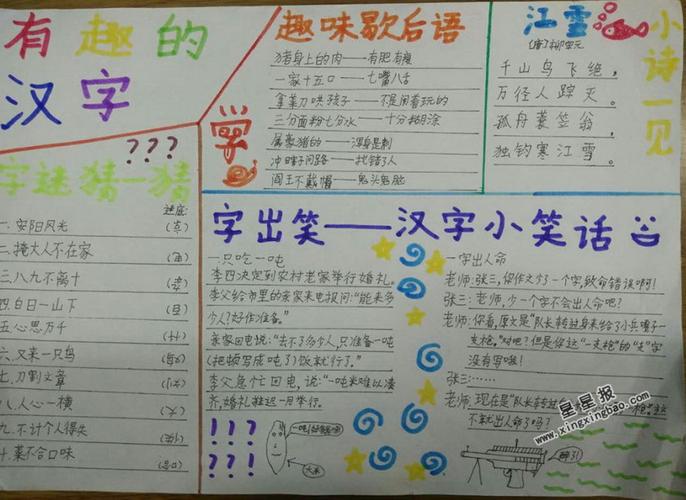 有趣的
汉字
趣味歇后语
猪身上的肉——有肥有瘦
一家十五口——七嘴八舌
拿菜刀哄孩子——不是闹着玩的
三分面粉七分水——十分糊涂
属豪猪的——浑身是刺
冲瞎子问路——找错了人
阎王不戴帽——鬼头鬼脑
学
江雪
(唐)柳宗元
千山鸟飞绝,
万径人踪灭。
孤舟蓑笠翁,
独钓寒江雪。
小诗一见
???
字谜猜一猜
谜底:
一.安阳风光
二.掩大人不在家
三.八九不离十
四.白日一山下
五.心思万千
六.又来一只鸟
七.刀割文章
八.人心一横
九.不计个人得失
十.菜不合口味
字出笑——汉字小笑话
一只吃一吨
李四决定到农村老家举行婚礼。
李父给市里的亲家来电报问:“能来多
少人?好作准备。”
亲家回电说:“去不了多少人,只准备一吨
(把顿写成吨了)饭就行了。”
李父急忙回电,说:“一吨米难以凑
齐,婚礼推迟一月举行。
!???
???!
大米
一字出人命
老师:张三,你作文少了一个字,致命错误啊!
张三:老师,少一个字不会出人命吧?
老师:你看,原文是“队长转过身来给了小兵嘎子一
支枪。”对吧?但是你这“一支枪”的“支”字
没有写哦!
张三:……
老师:现在是“队长转过
就出人命了吗?
星星报
www.xingxingbao.com